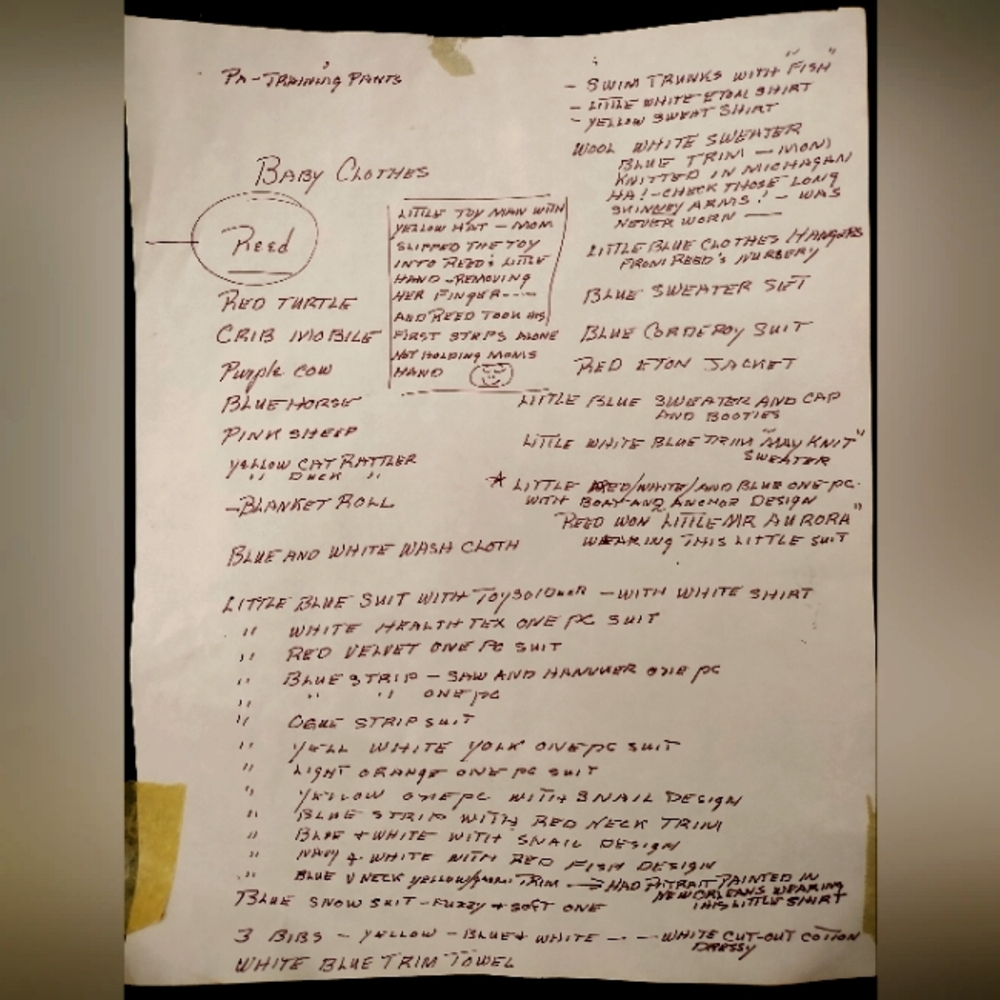 PA-TRAINING PANTS
BABY CLOTHES
Reed
RED TURTLE
CRIB MOBILE
Purple cow
BLUE HORSE
PINK SHEEP
YELLOW CAT RATTLER
" DUCK "
-BLANKET ROLL
BLUE AND WHITE WASH CLOTH
LITTLE TOY MAN WITH
YELLOW HAT - MOM
SLIPPED THE TOY
INTO REED'S LITTLE
HAND - REMOVING
HER FINGER----
AND REED TOOK HIS
FIRST STEPS ALONE
NOT HOLDING MOMS
HAND
- SWIM TRUNKS WITH "FISH"
- LITTLE WHITE ETON SHIRT
- YELLOW SWEAT SHIRT
WOOL WHITE SWEATER
BLUE TRIM - MOM
KNITTED IN MICHAGAN
HA! - CHECK THOSE LONG
SKINNEY ARMS! - WAS
NEVER WORN -
LITTLE BLUE CLOTHES HANGERS
FROM REED'S NURSERY
BLUE SWEATER SET
BLUE CORDEROY SUIT
RED ETON JACKET
LITTLE BLUE SWEATER AND CAP
AND BOOTIES
LITTLE WHITE BLUE TRIM "MAY KNIT"
SWEATER
* LITTLE RED/WHITE/AND BLUE ONE-PC.
WITH BOAT AND ANCHOR DESIGN
"REED WON LITTLE MR AURORA"
WEARING THIS LITTLE SUIT
LITTLE BLUE SUIT WITH - WITH WHITE SHIRT
" WHITE HEALTH TEX ONE PC SUIT
" RED VELVET ONE PC SUIT
" BLUE STRIP - SAW AND HAMMER ONE PC
" " " ONE PC
" STRIP SUIT
" YELL WHITE YOLK ONE PC SUIT
" LIGHT ORANGE ONE PC SUIT
" YELLOW ONE PC WITH SNAIL DESIGN
" BLUE STRIP WITH RED NECK TRIM
" BLUE + WHITE WITH SNAIL DESIGN
" NAVY + WHITE WITH RED FISH DESIGN
" BLUE V NECK YELLOW/ TRIM → HAD PITRAIT PAINTED IN
NEW ORLEANS WEARING
THIS LITTLE SHIRT
BLUE SNOW SUIT - FUZZY + SOFT ONE
3 BIBS - YELLOW - BLUE + WHITE - - - WHITE CUT-OUT COTTON
DRESSY
WHITE BLUE TRIM TOWEL